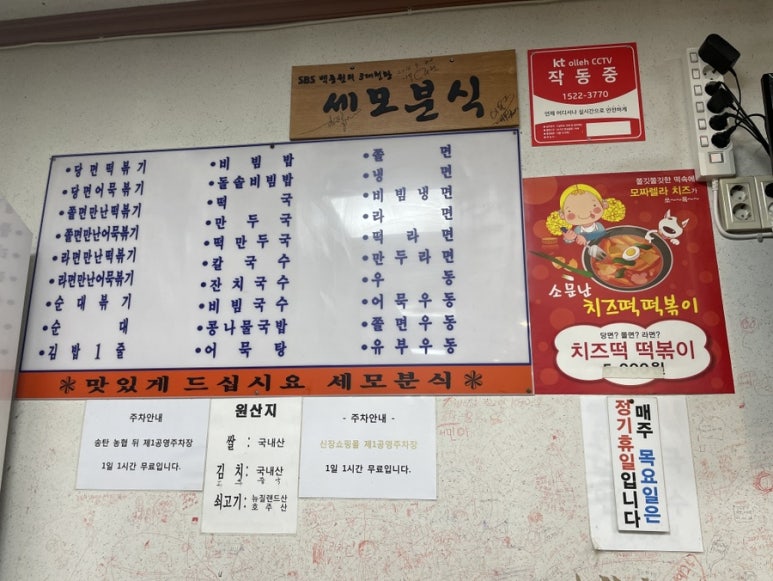 SBS 백종원의 3대천왕
세모분식
kt olleh CCTV
작동중
1522-3770
언제 어디서나 실시간으로 안전하게
당면떡볶기
당면어묵볶기
쫄면만난떡볶기
쫄면만난어묵볶기
라면만난떡볶기
라면만난어묵볶기
순대볶기
순대
김밥1줄
비빔밥
돌솥비빔밥
떡국
만두국
떡만두국
칼국수
잔치국수
비빔국수
콩나물국밥
어묵탕
쫄면
냉면
비빔냉면
라면
떡라면
만두라면
우동
어묵우동
쫄면우동
유부우동
맛있게 드십시요 세모분식
쫄깃쫄깃한 떡속에
모짜렐라 치즈가
쏘~~옥~~
소문난
치즈떡떡볶이
당면? 쫄면? 라면?
치즈떡 떡볶이
주차안내
송탄 농협 뒤 제1공영주차장
1일 1시간 무료입니다.
원산지
쌀 : 국내산
김치 : 국내산
쇠고기 : 뉴질랜드산
호주산
- 주차안내 -
신장쇼핑몰 제1공영주차장
1일 1시간 무료입니다.
매주 목요일은
정기휴일입니다